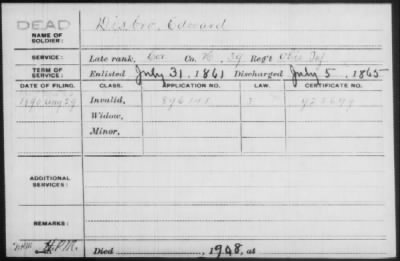 DEAD
NAME OF SOLDIER: Disbro, Edward
SERVICE: Late rank, Cor Co. H, 39 Reg't Ohio Inf
TERM OF SERVICE: Enlisted July 31, 1861 Discharged July 5, 1865
DATE OF FILING. CLASS. APPLICATION NO. LAW. CERTIFICATE NO.
1890 Aug 29 Invalid,
Widow,
Minor,
ADDITIONAL SERVICES:
REMARKS:
H.P.M. Died 1908, at